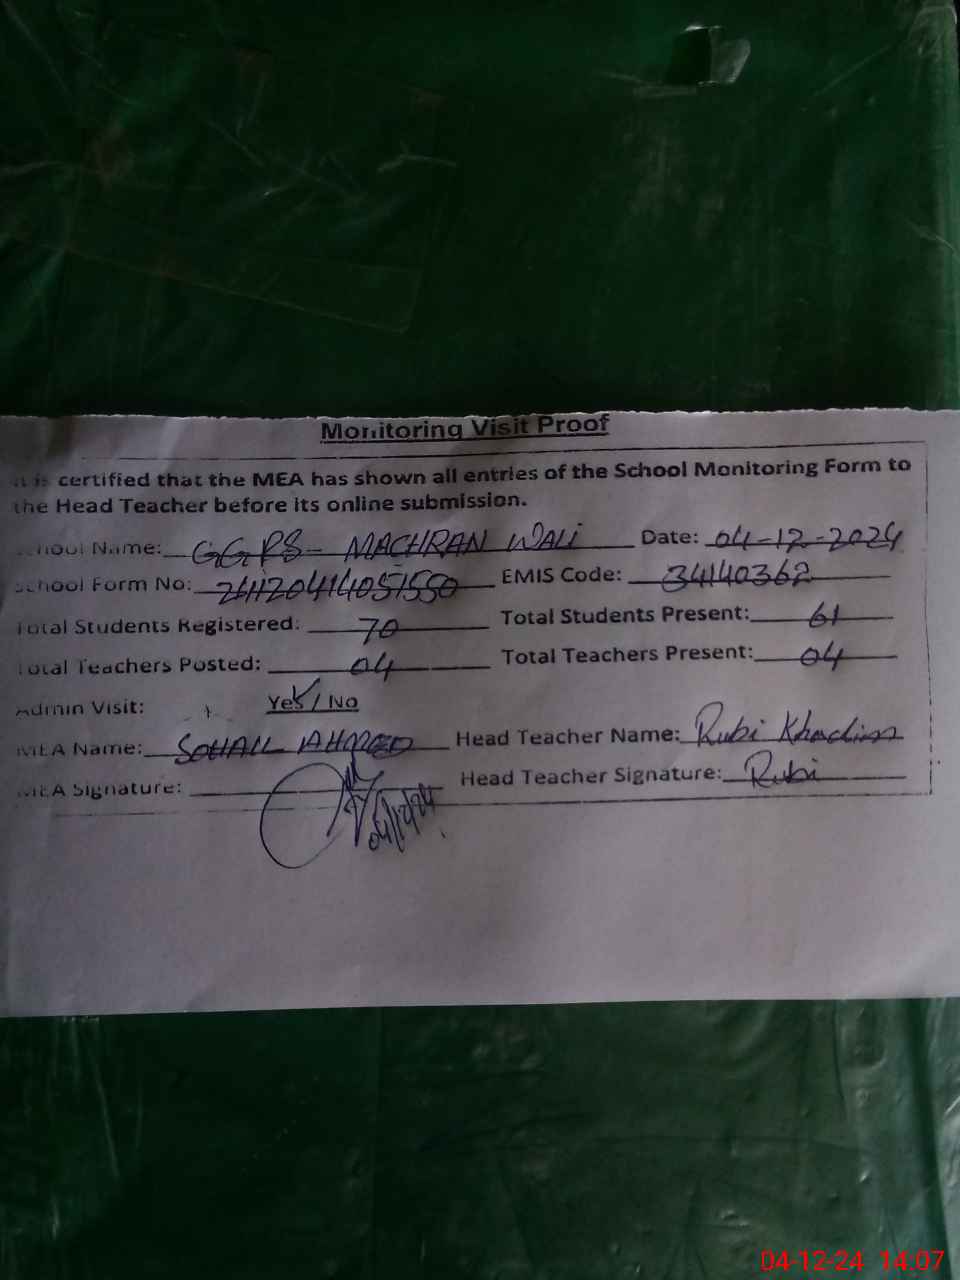 Monitoring Visit Proof
It is certified that the MEA has shown all entries of the School Monitoring Form to
the Head Teacher before its online submission.
School Name: GGPS - MACHRAN WALI Date: 04-12-2024
School Form No: 24120414051550 EMIS Code: 34140362
Total Students Registered: 70 Total Students Present: 61
Total Teachers Posted: 04 Total Teachers Present: 04
Admin Visit: Yes / No
MEA Name: SOHAIL AHMED Head Teacher Name: Rubi
MEA Signature: Head Teacher Signature: Rubi
04/12/24
04-12-24 14:07